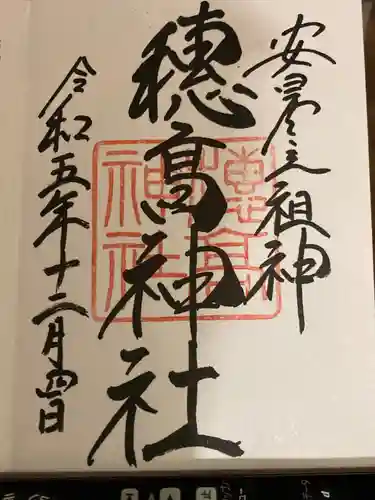 安曇之祖神
穂高神社
令和五年十二月四日
穂高神社